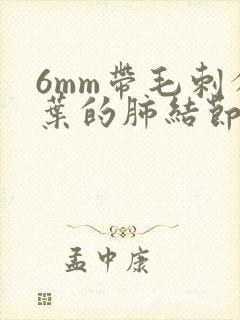 6mm帶毛刺
葉的肺結節
孟中康